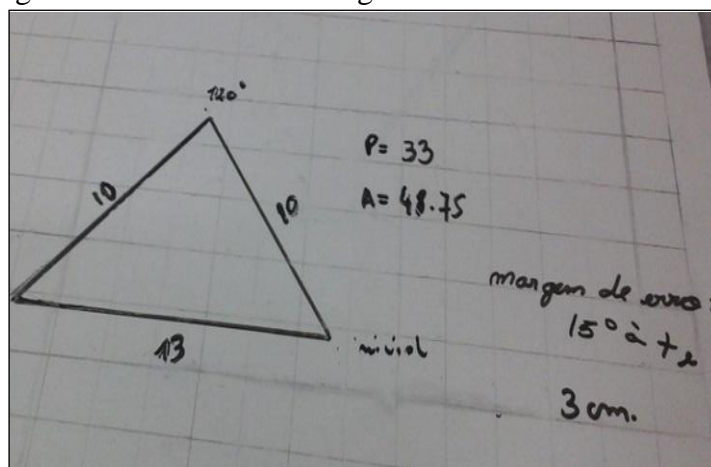 120°
10
10
P= 33
A= 48.75
13
inicial
margem de erro:
15° à + e
3 cm.